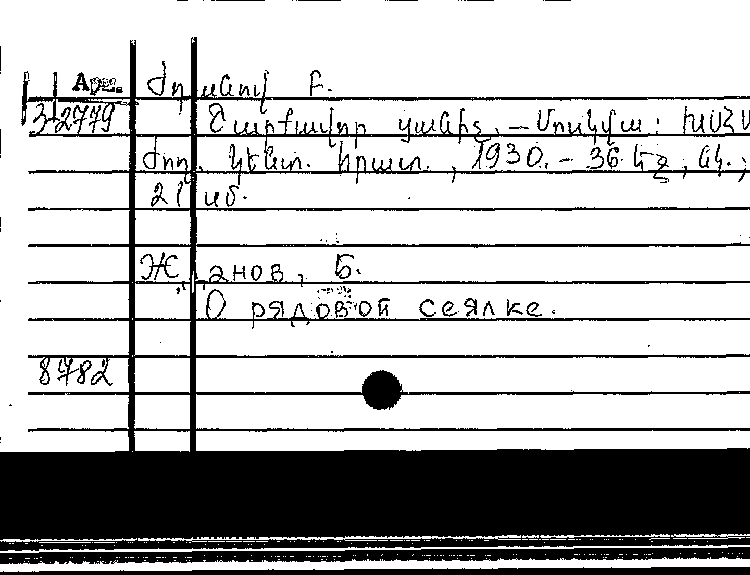 Арм. Ժդանով Բ.
3-2779 Շարքավոր ցանիչ. – Մոսկվա: ԽՍՀՄ
ժող. կենտ. հրատ., 1930. – 36 էջ, նկ.;
21 սմ.
Жданов, Б.
О рядовой сеялке.
8782